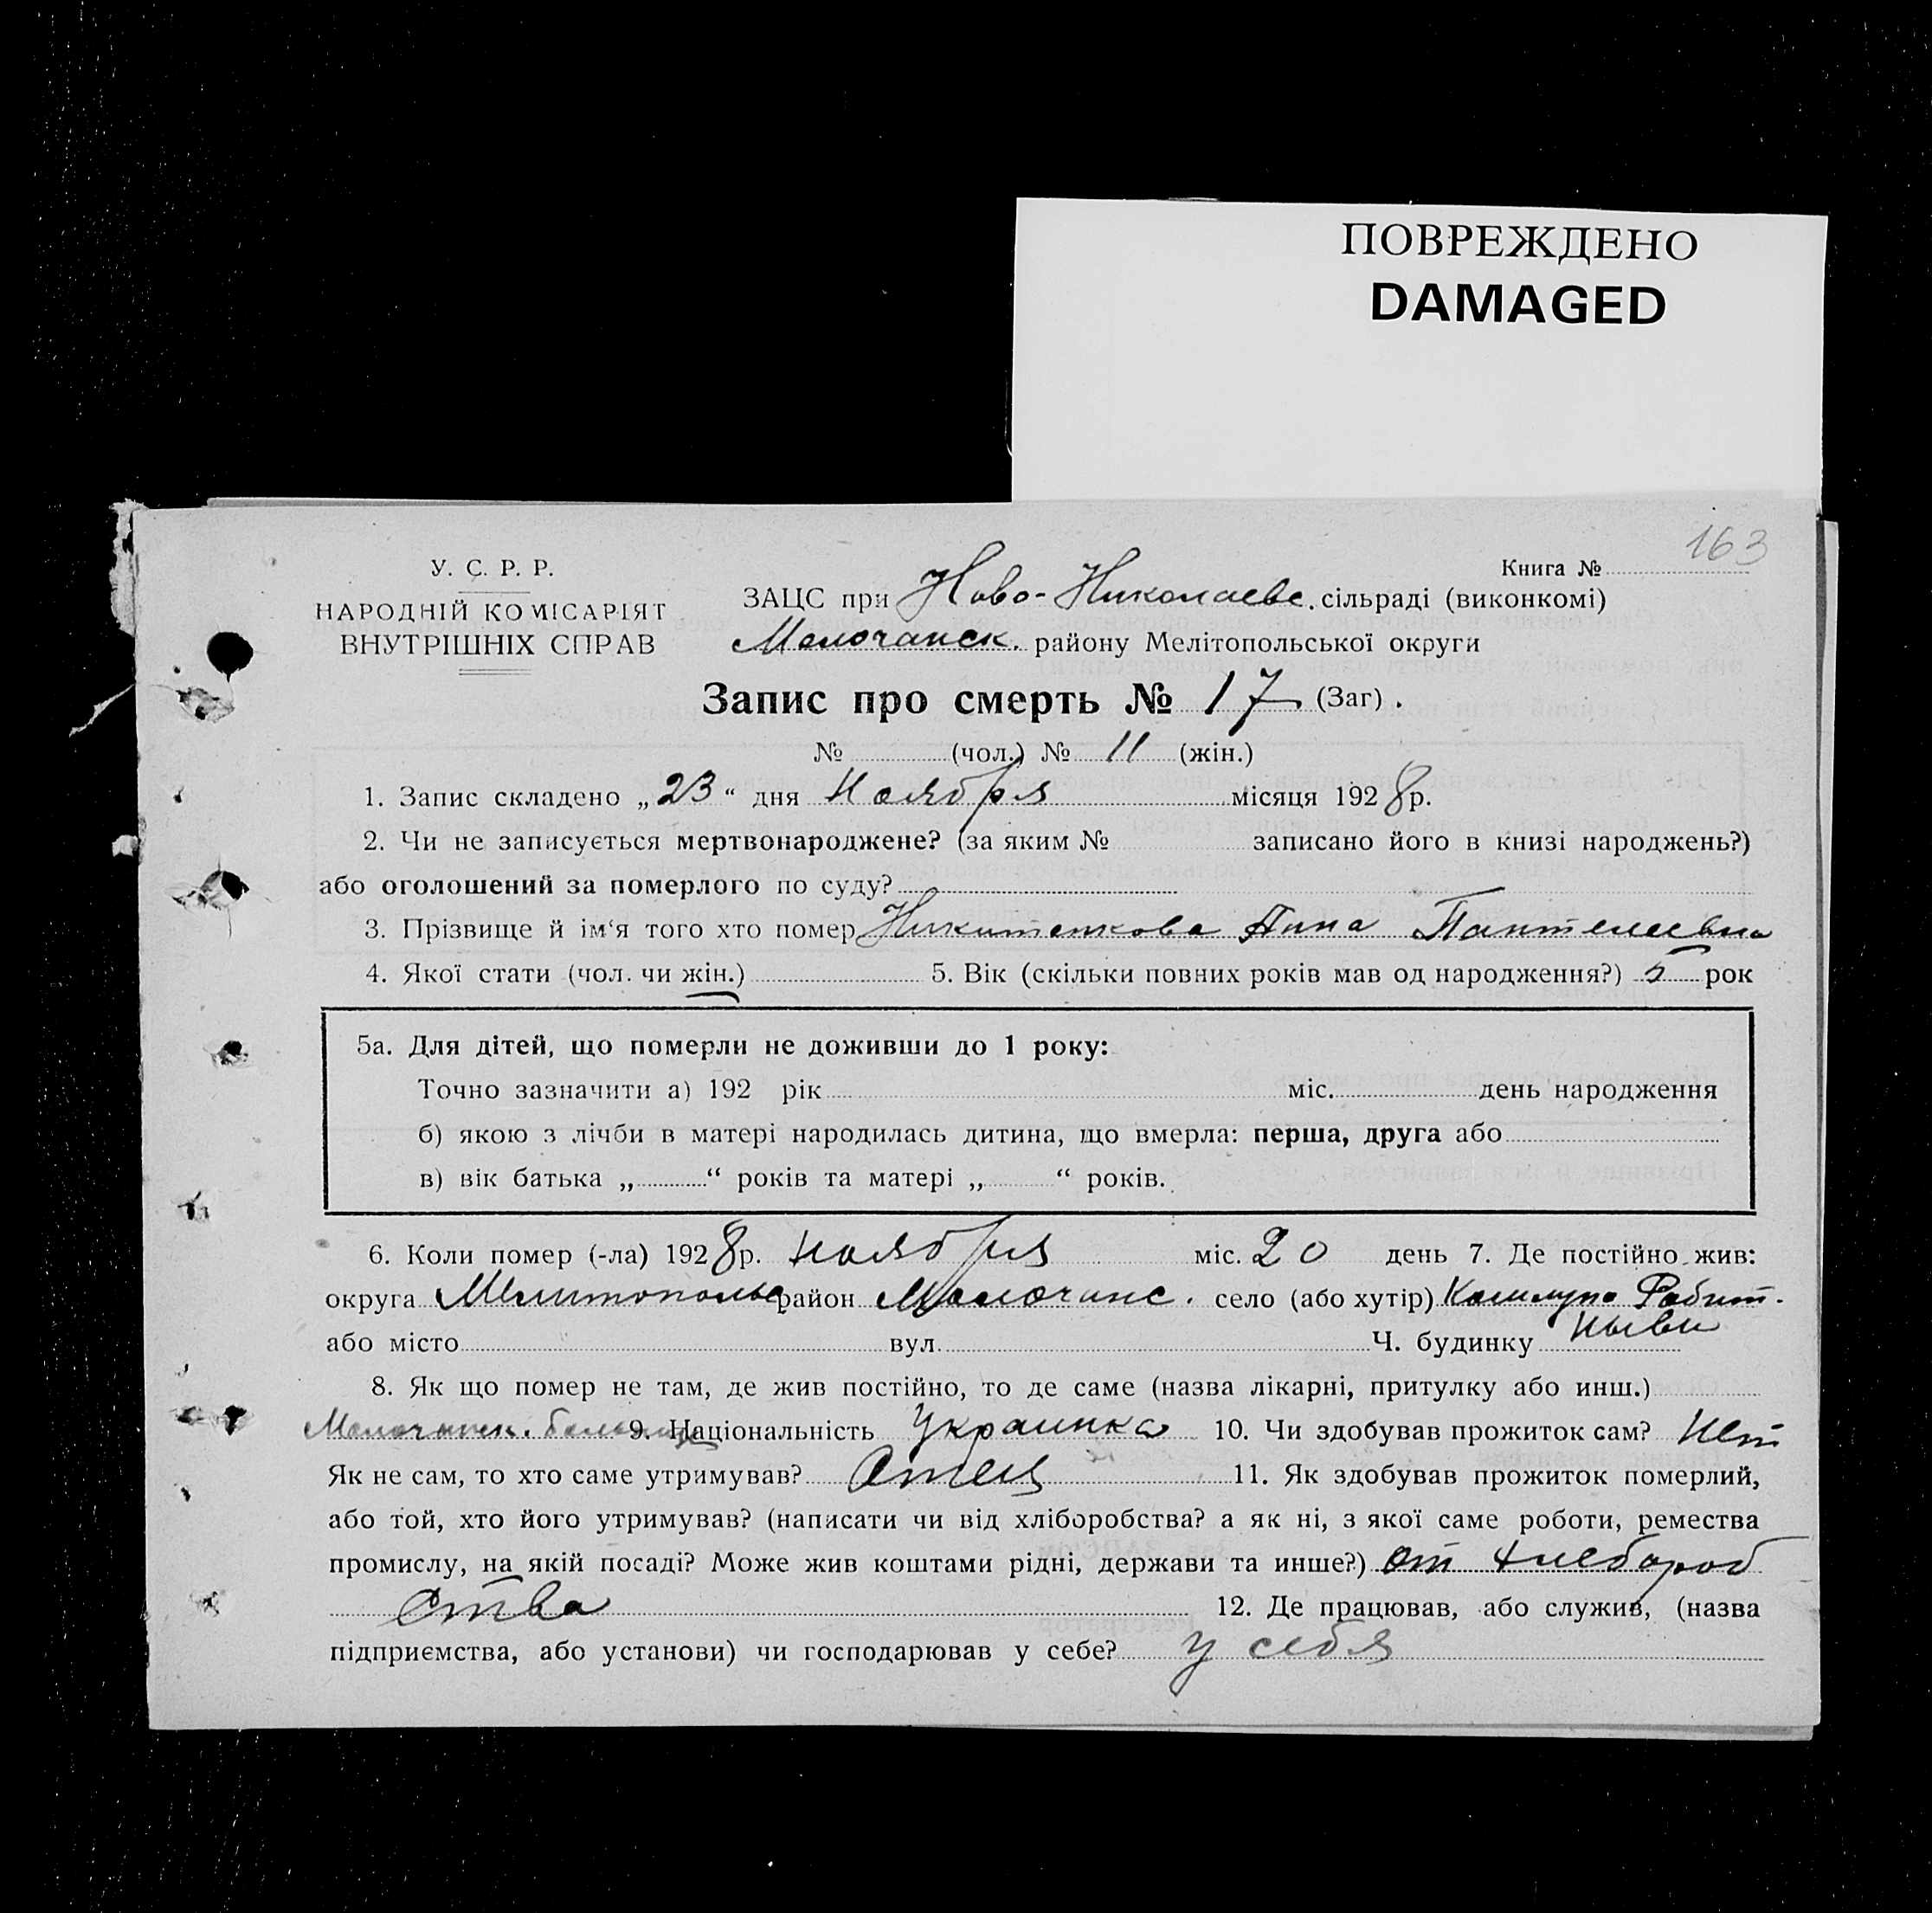 ПОВРЕЖДЕНО
DAMAGED
163
У. С. Р. Р.
НАРОДНІЙ КОМІСАРІЯТ
ВНУТРІШНІХ СПРАВ
Книга №
ЗАЦС при Ново-Николаевс. сільраді (виконкомі)
Молочанск. району Мелітопольської округи
Запис про смерть № 17 (Заг).
№ (чол.) № 11 (жін.)
1. Запис складено „23“ дня Ноября місяця 1928 р.
2. Чи не записується мертвонароджене? (за яким № записано його в книзі народжень?)
або оголошений за померлого по суду?
3. Прізвище й ім‘я того хто помер Никитенкова Анна Пантелеевна
4. Якої стати (чол. чи жін.) 5. Вік (скільки повних років мав од народження?) 5 рок
5а. Для дітей, що померли не доживши до 1 року:
Точно зазначити а) 192 рік міс. день народження
б) якою з лічби в матері народилась дитина, що вмерла: перша, друга або
в) вік батька „ “ років та матері „ “ років.
6. Коли помер (-ла) 1928 р. ноября міс. 20 день 7. Де постійно жив:
округа Мелитопольс район Молочанс. село (або хутір) Коммуна Робит.
або місто вул. Ч. будинку Нывы
8. Як що помер не там, де жив постійно, то де саме (назва лікарні, притулку або инш.)
Молочанск. больница 9. Національність Украинка 10. Чи здобував прожиток сам? Нет
Як не сам, то хто саме утримував? Отец 11. Як здобував прожиток померлий,
або той, хто його утримував? (написати чи від хліборобства? а як ні, з якої саме роботи, ремества
промислу, на якій посаді? Може жив коштами рідні, держави та инше?) от хлебороб
ства 12. Де працював, або служив, (назва
підприємства, або установи) чи господарював у себе? у себя